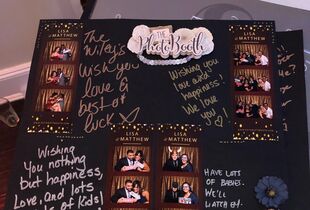 LISA
& MATTHEW
The
Wifey's
Wish you
love &
best of
luck
THE
PhotoBooth
Wishing you
love and
happiness!
We love
you!
LISA
& MATTHEW
LISA
& MATTHEW
LISA
& MATTHEW
Wishing
You nothing
but happiness,
Love, and lots
of Kids!
HAVE LOTS
OF BABIES.
WE'LL
WATCH EM.